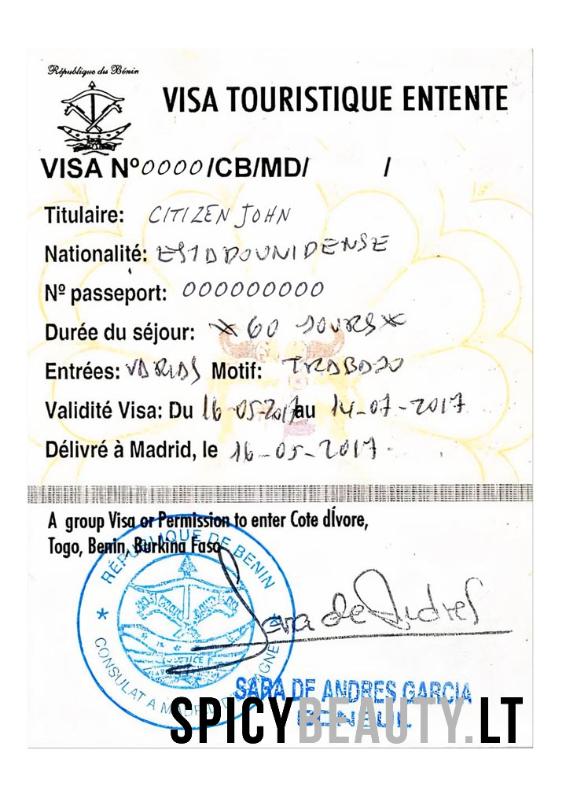 République du Bénin
VISA TOURISTIQUE ENTENTE
VISA Nº 0000/CB/MD/ /
Titulaire: CITIZEN JOHN
Nationalité: ESTADOUNIDENSE
Nº passeport: 000000000
Durée du séjour: * 60 JOURS *
Entrées: VARIAS Motif: TRABAJO
Validité Visa: Du 16-05-2017 au 14-07-2017
Délivré à Madrid, le 16-05-2017-
A group Visa or Permission to enter Cote dÍvore,
Togo, Benin, Burkina Faso
RÉPUBLIQUE DE BENIN
CONSULAT A
JUSTICE
Sara de Andres
SARA DE ANDRES GARCIA
CONSUL
SPICYBEAUTY.LT